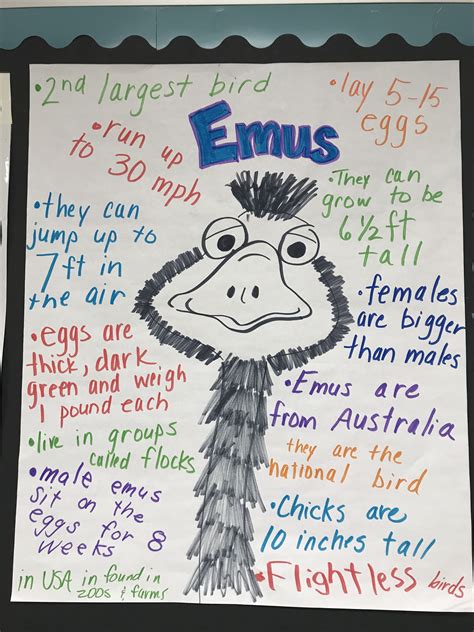 Emus
•2nd largest bird
•run up
to 30 mph
•they can
jump up to
7ft in
the air
•eggs are
thick, dark
green and weigh
1 pound each
•live in groups
called flocks
•male emus
sit on the
eggs for 8
weeks
in USA in found in
zoos & farms
•lay 5-15
eggs
•They can
grow to be
6 1/2 ft
tall
•females
are bigger
than males
•Emus are
from Australia
they are the
national bird
•Chicks are
10 inches tall
•Flightless birds